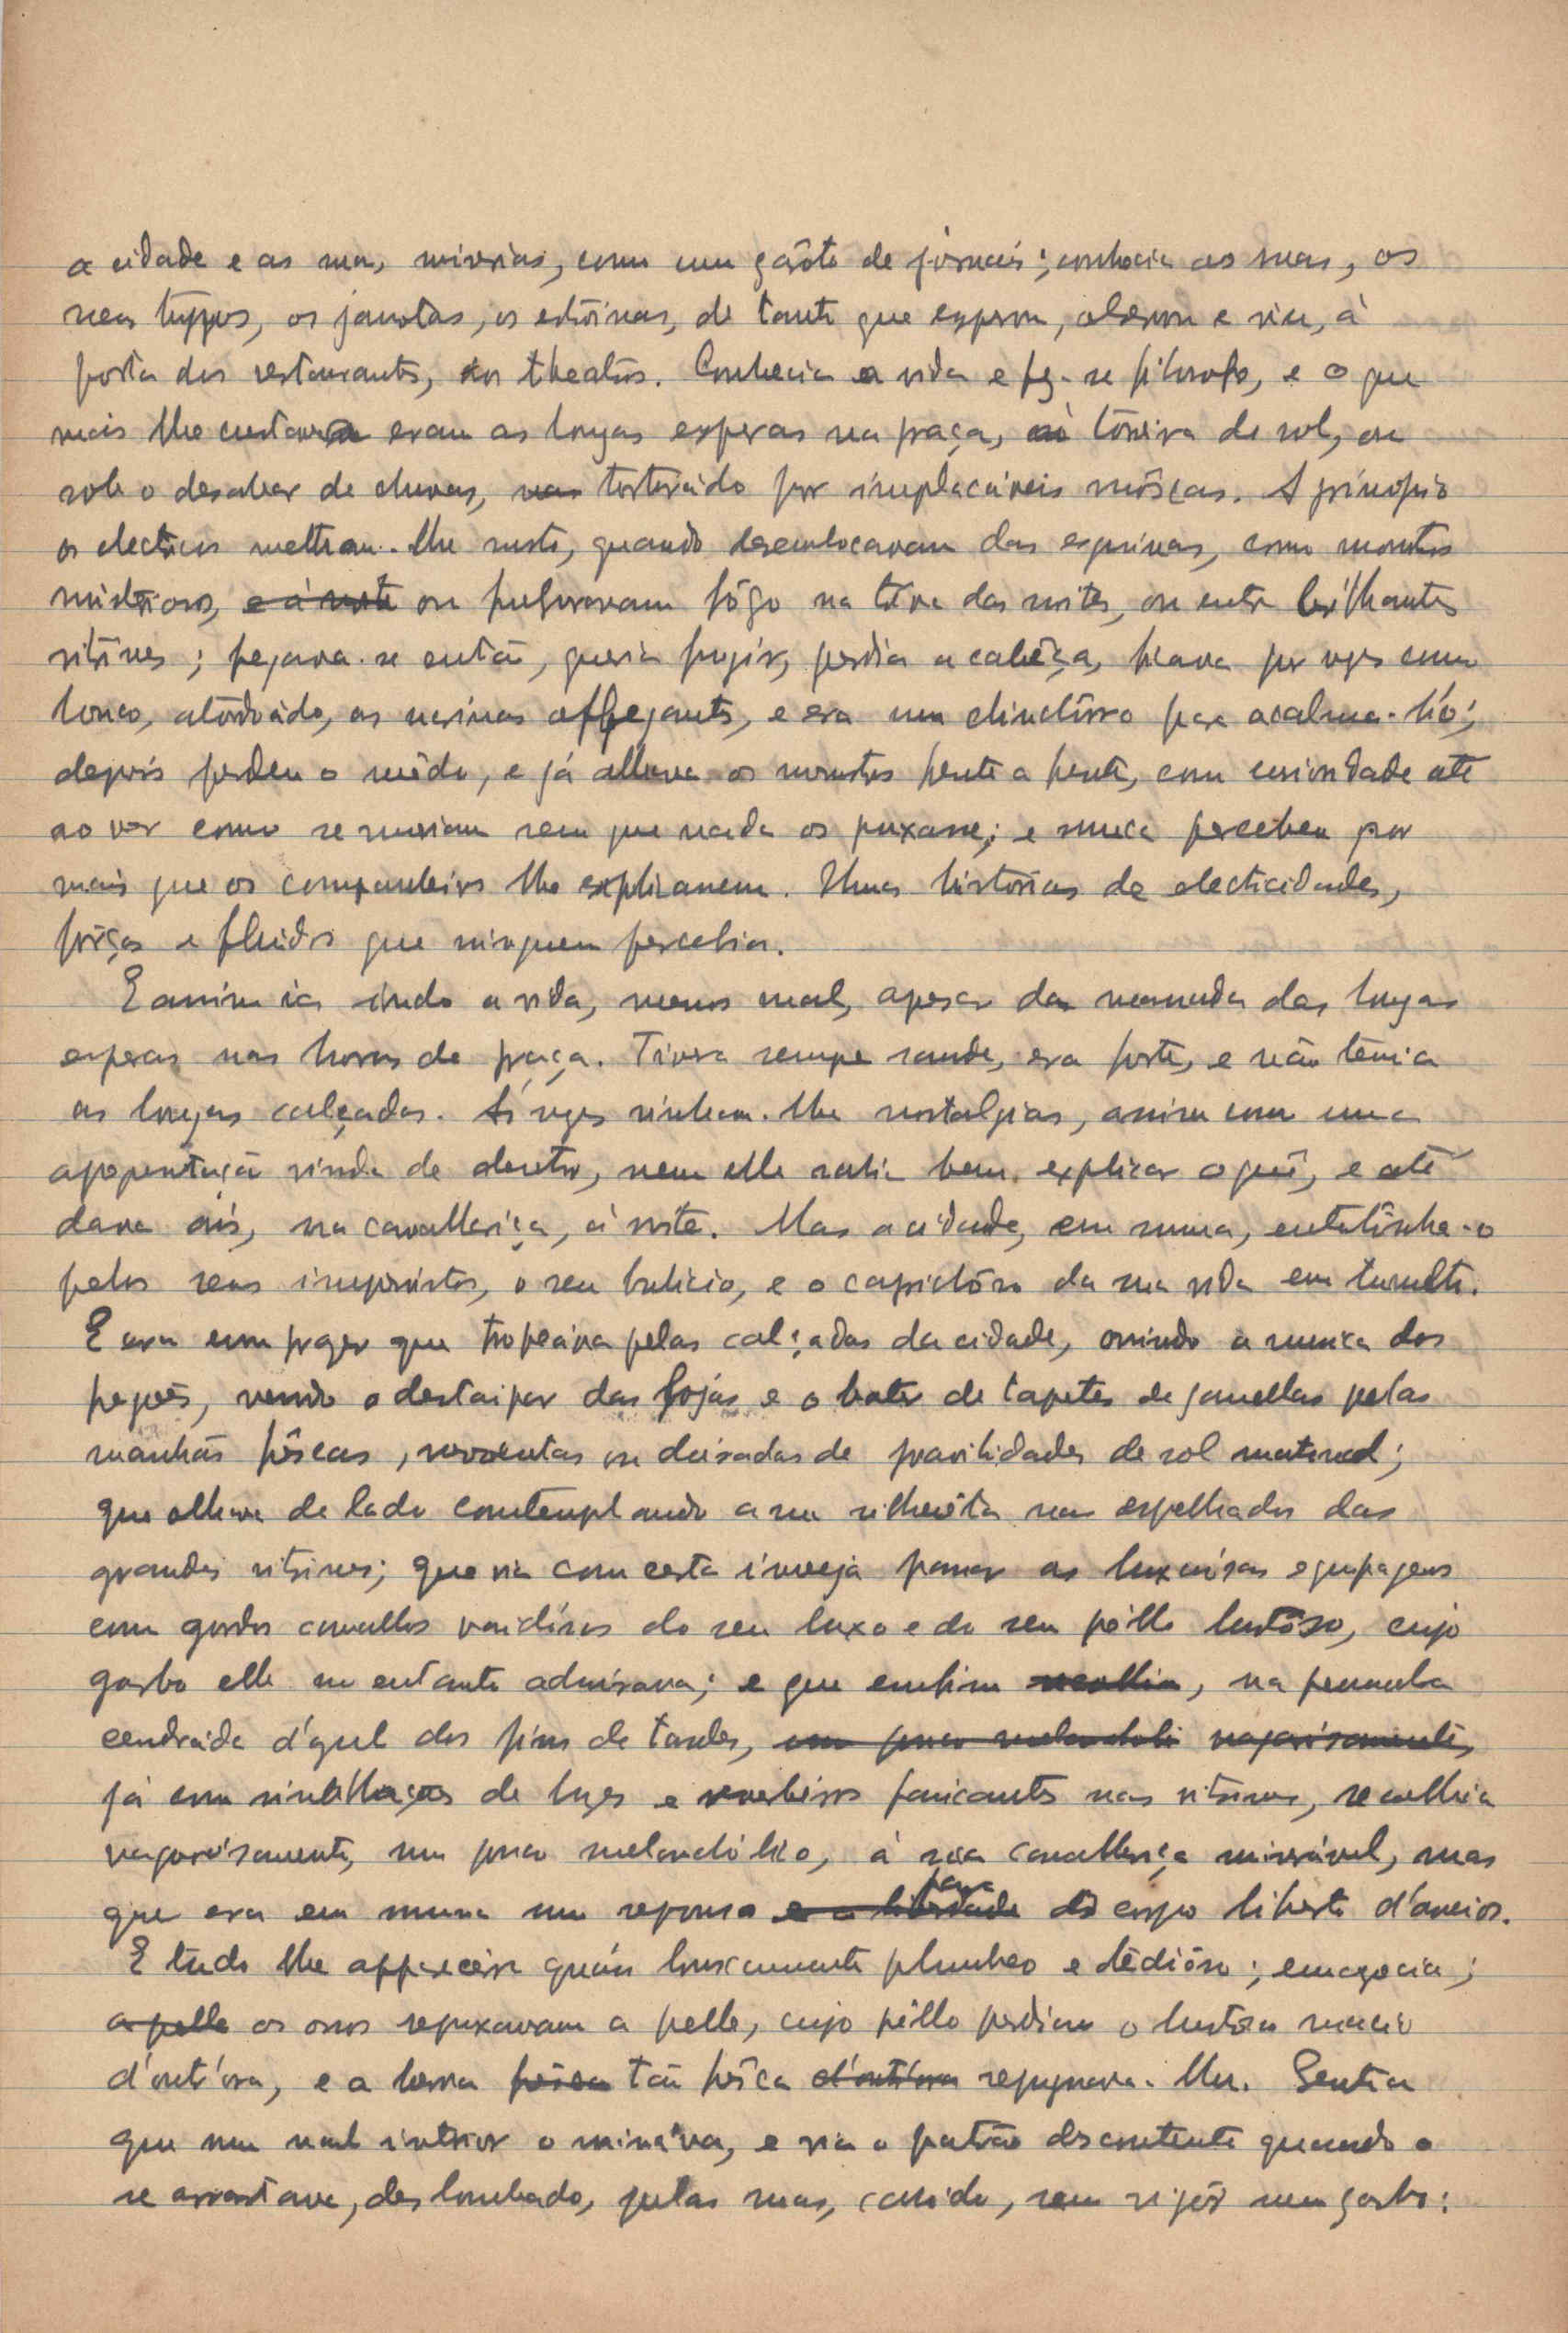 a cidade e as suas miserias, como um garôto de jornaes; conhecia as ruas, os
seus typpos, os janotas, os estoinas, de tanto que esperou, observou e viu, à
porta dos restaurants, dos theatros. Conhecia a vida e fez-se filosofo, e o que
mais lhe custava eram as longas esperas na praça, à torreira do sol, ou
sob o desabar de chuvas, torturádo por implacáveis môscas. A principio
os electricos mettiam-lhe susto, quando desembocavam das esquinas, como monstros
misteriosos, e á noite ou fulguravam fôgo na tréva das noites, ou entre brilhantes
vitrines; pegava-se então, queria fugir, perdia a cabêça, ficava por vezes como
louco, atordoádo, as narinas offegantes, e era um chinclôrro para acalma-l'o;
depois perdeu o mêdo, e já olhava os monstros frente a frente, com curiosidade até
ao ver como se moviam sem que nada os puxasse; e nunca percebeu por
mais que os companheiros lhe explicassem. Umas historias de electricidades,
fôrças e fluidos que ninguem percebia.
E assim ia indo a vida, menos mal, apesar da massada das longas
esperas nas horas de praça. Tivera sempre saude, era forte, e não temia
as longas calçadas. Ás vezes vinham-lhe nostalgias, assim como uma
apoquentação vinda de dentro, nem elle sabia bem explicar o quê, e até
dava ais, na cavallariça, á noite. Mas a cidade, em summa, entretinha-o
pelos seus imprevistos, o seu bulicio, e o caprichôso da sua vida em tumulto.
E era com prazer que tropeáva pelas calçadas da cidade, ouvindo a musica dos
pregões, vendo o destaipar das lojas e o bater de tapetes de janellas pelas
manhãs frêscas, nevoentas ou doiradas de fragilidades de sol matinal;
que olhava de lado contemplando a sua silhouêta nos espelhados das
grandes vitrines; que via com certa inveja passar as luxuósas equipagens
com gordos cavallos vaidósos do seu luxo e do seu pêllo lustrôso, cujo
garbo elle no entanto admirava; e que emfim recolhia, na penumbra
cendráda d'azul dos fins de tardes, um pouco melancholi vagarósamente,
já com scintillações de luzes e reverbéros faiscantes nas vitrines, recolhia
vagarósamente, um pouco melancólico, á sua cavallariça miserável, mas
que era em summa um repouso e a liberdade para o corpo liberto d'arreios.
E tudo lhe apparecêra quási bruscamente plumbeo e tediôso; emagrecia;
a pelle os ossos repuxavam a pelle, cujo pêllo perdiam o lustroso macio
d'outr'ora, e a herva frêsca tão frêsca d'outr'ora repugnava-lhe. Sentia
que um mal interior o mináva, e via o patrão descontente quando o
se arrastava, deslombado, pelas ruas, cansado, sem vigôr nem garbo: